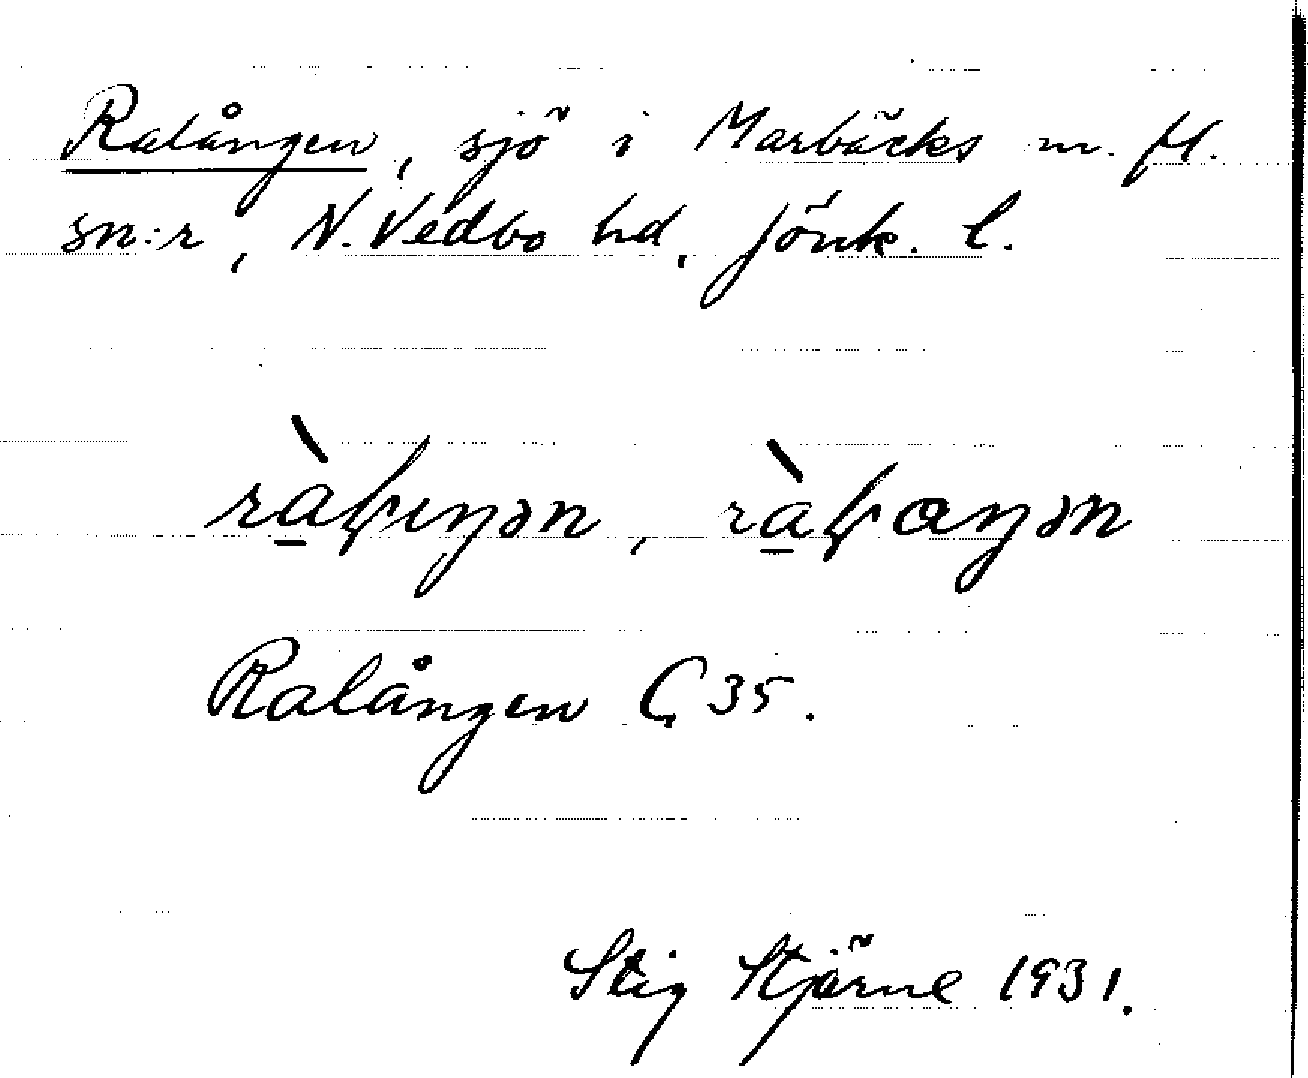 Ralången, sjö i Marbäcks m. fl.
sn:r, N. Vedbo hd, Jönk. l.
Ralången G 35.
Stig Stjärne 1931.